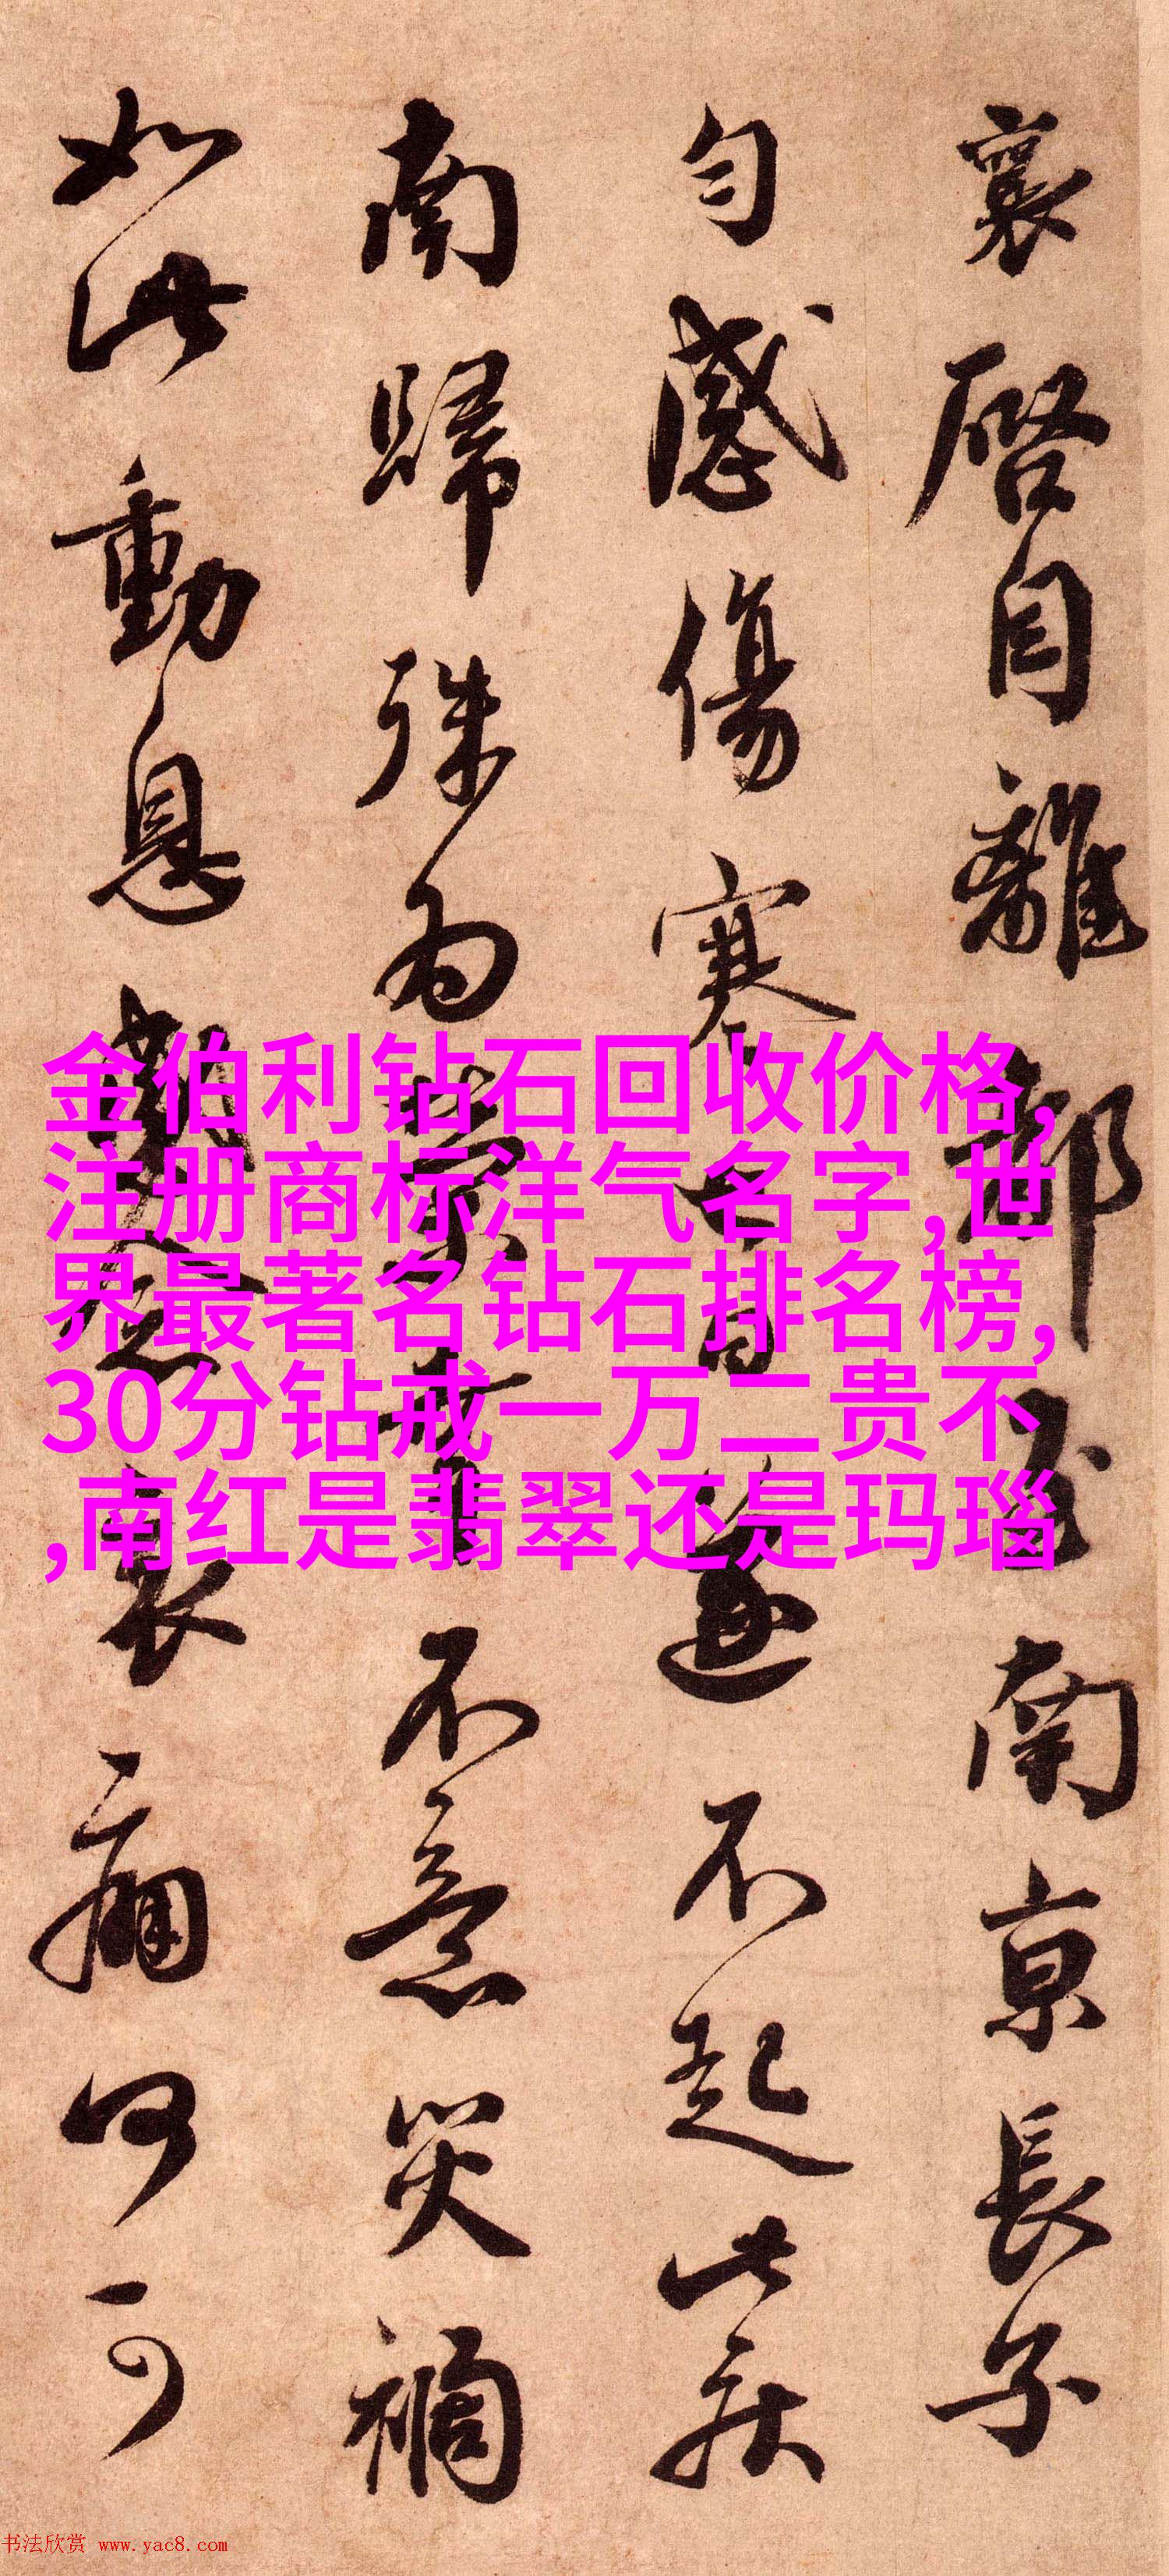 襄啓自離都至南京長子
匀感傷寒七日遂不起此疾
南歸殊为榮幸不意災禍
如此動息哀痛何可
金伯利钻石回收价格,
注册商标洋气名字,世
界最著名钻石排名榜,
30分钻戒一万二贵不
,南红是翡翠还是玛瑙
书法欣赏 www.yac8.com